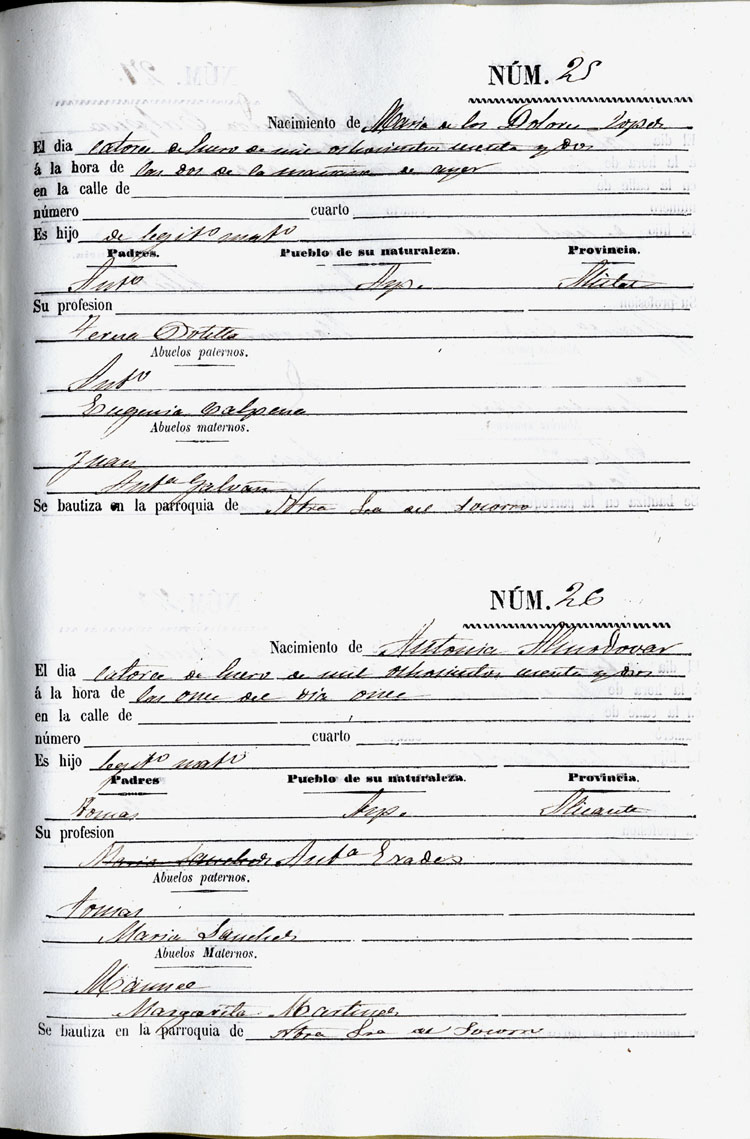 NÚM. 25
Nacimiento de Maria de los Dolores Lopes
El dia catorce de Enero de mil ochocientos y dos
á la hora de las dos de la mañana de ayer
en la calle de
número cuarto
Es hijo de legitº matº
Padres. Pueblo de su naturaleza. Provincia.
Antº Asp.
Su profesion
Teresa Botella
Abuelos paternos.
Antº
Eugenia Calpena
Abuelos maternos.
Juan
Antª Galvan
Se bautiza en la parroquia de Ntra Sra del Socorro
NÚM. 26
Nacimiento de Antonia Almodovar
El dia catorce de Enero de mil ochocientos y dos
á la hora de las once del dia once
en la calle de
número cuarto
Es hijo legitº matº
Padres Pueblo de su naturaleza. Provincia.
tomas Asp. Alicante
Su profesion
Maria Sanches Antª Erades
Abuelos paternos.
tomas
Maria Sanches
Abuelos Maternos.
Manuel
Margarita Martines
Se bautiza en la parroquia de Ntra Sra del Socorro